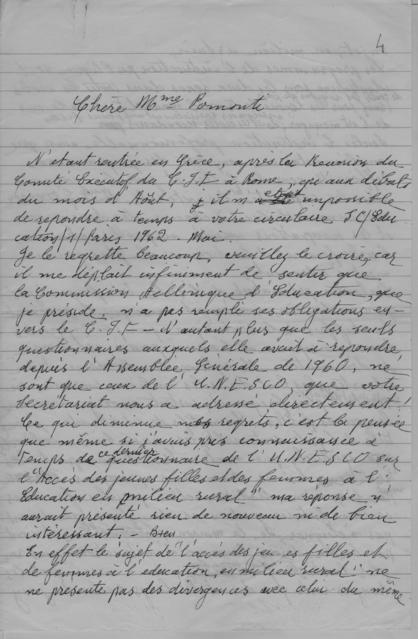 4
Chère Mme Pomonti
N'étant rentrée en Grèce, après la Reunion du
Comité Executof du C.I.F à Rome, qu'aux débuts
du mois d'Août, il m'était impossible
de repondre à temps à votre circulaire SC/Edu
cation/1/Paris 1962 - Mai.
Je le regrette beaucoup, veuillez le croire, car
il me déplait infiniment de sentir que
la Commission Hellenique d'Education, que
je préside, n'a pas rempli ses obligations en-
vers le C.I.F - N'autant plus que les seuls
questionnaires auxquels elle avait à repondre,
depuis l'Assemblée Générale de 1960, ne
sont que ceux de l'U.N.ESCO, que votre
Secretariat nous a adressé directement!
Ce qui diminue mes regrets, c'est la pensée
que même si j'avais pris connaissance à
temps de ce dernier questionnaire de l'U.N.ESCO sur
l'"Accès des jeunes filles et des femmes à l'
Education en milieu rural" ma reponse n'
aurait présenté rien de nouveau ni de bien
intéressant. - Bien
En effet le sujet de "l'accès des jeunes filles et
de femmes à l'education, en milieu rural" ne
ne présente pas des divergences avec celui du même